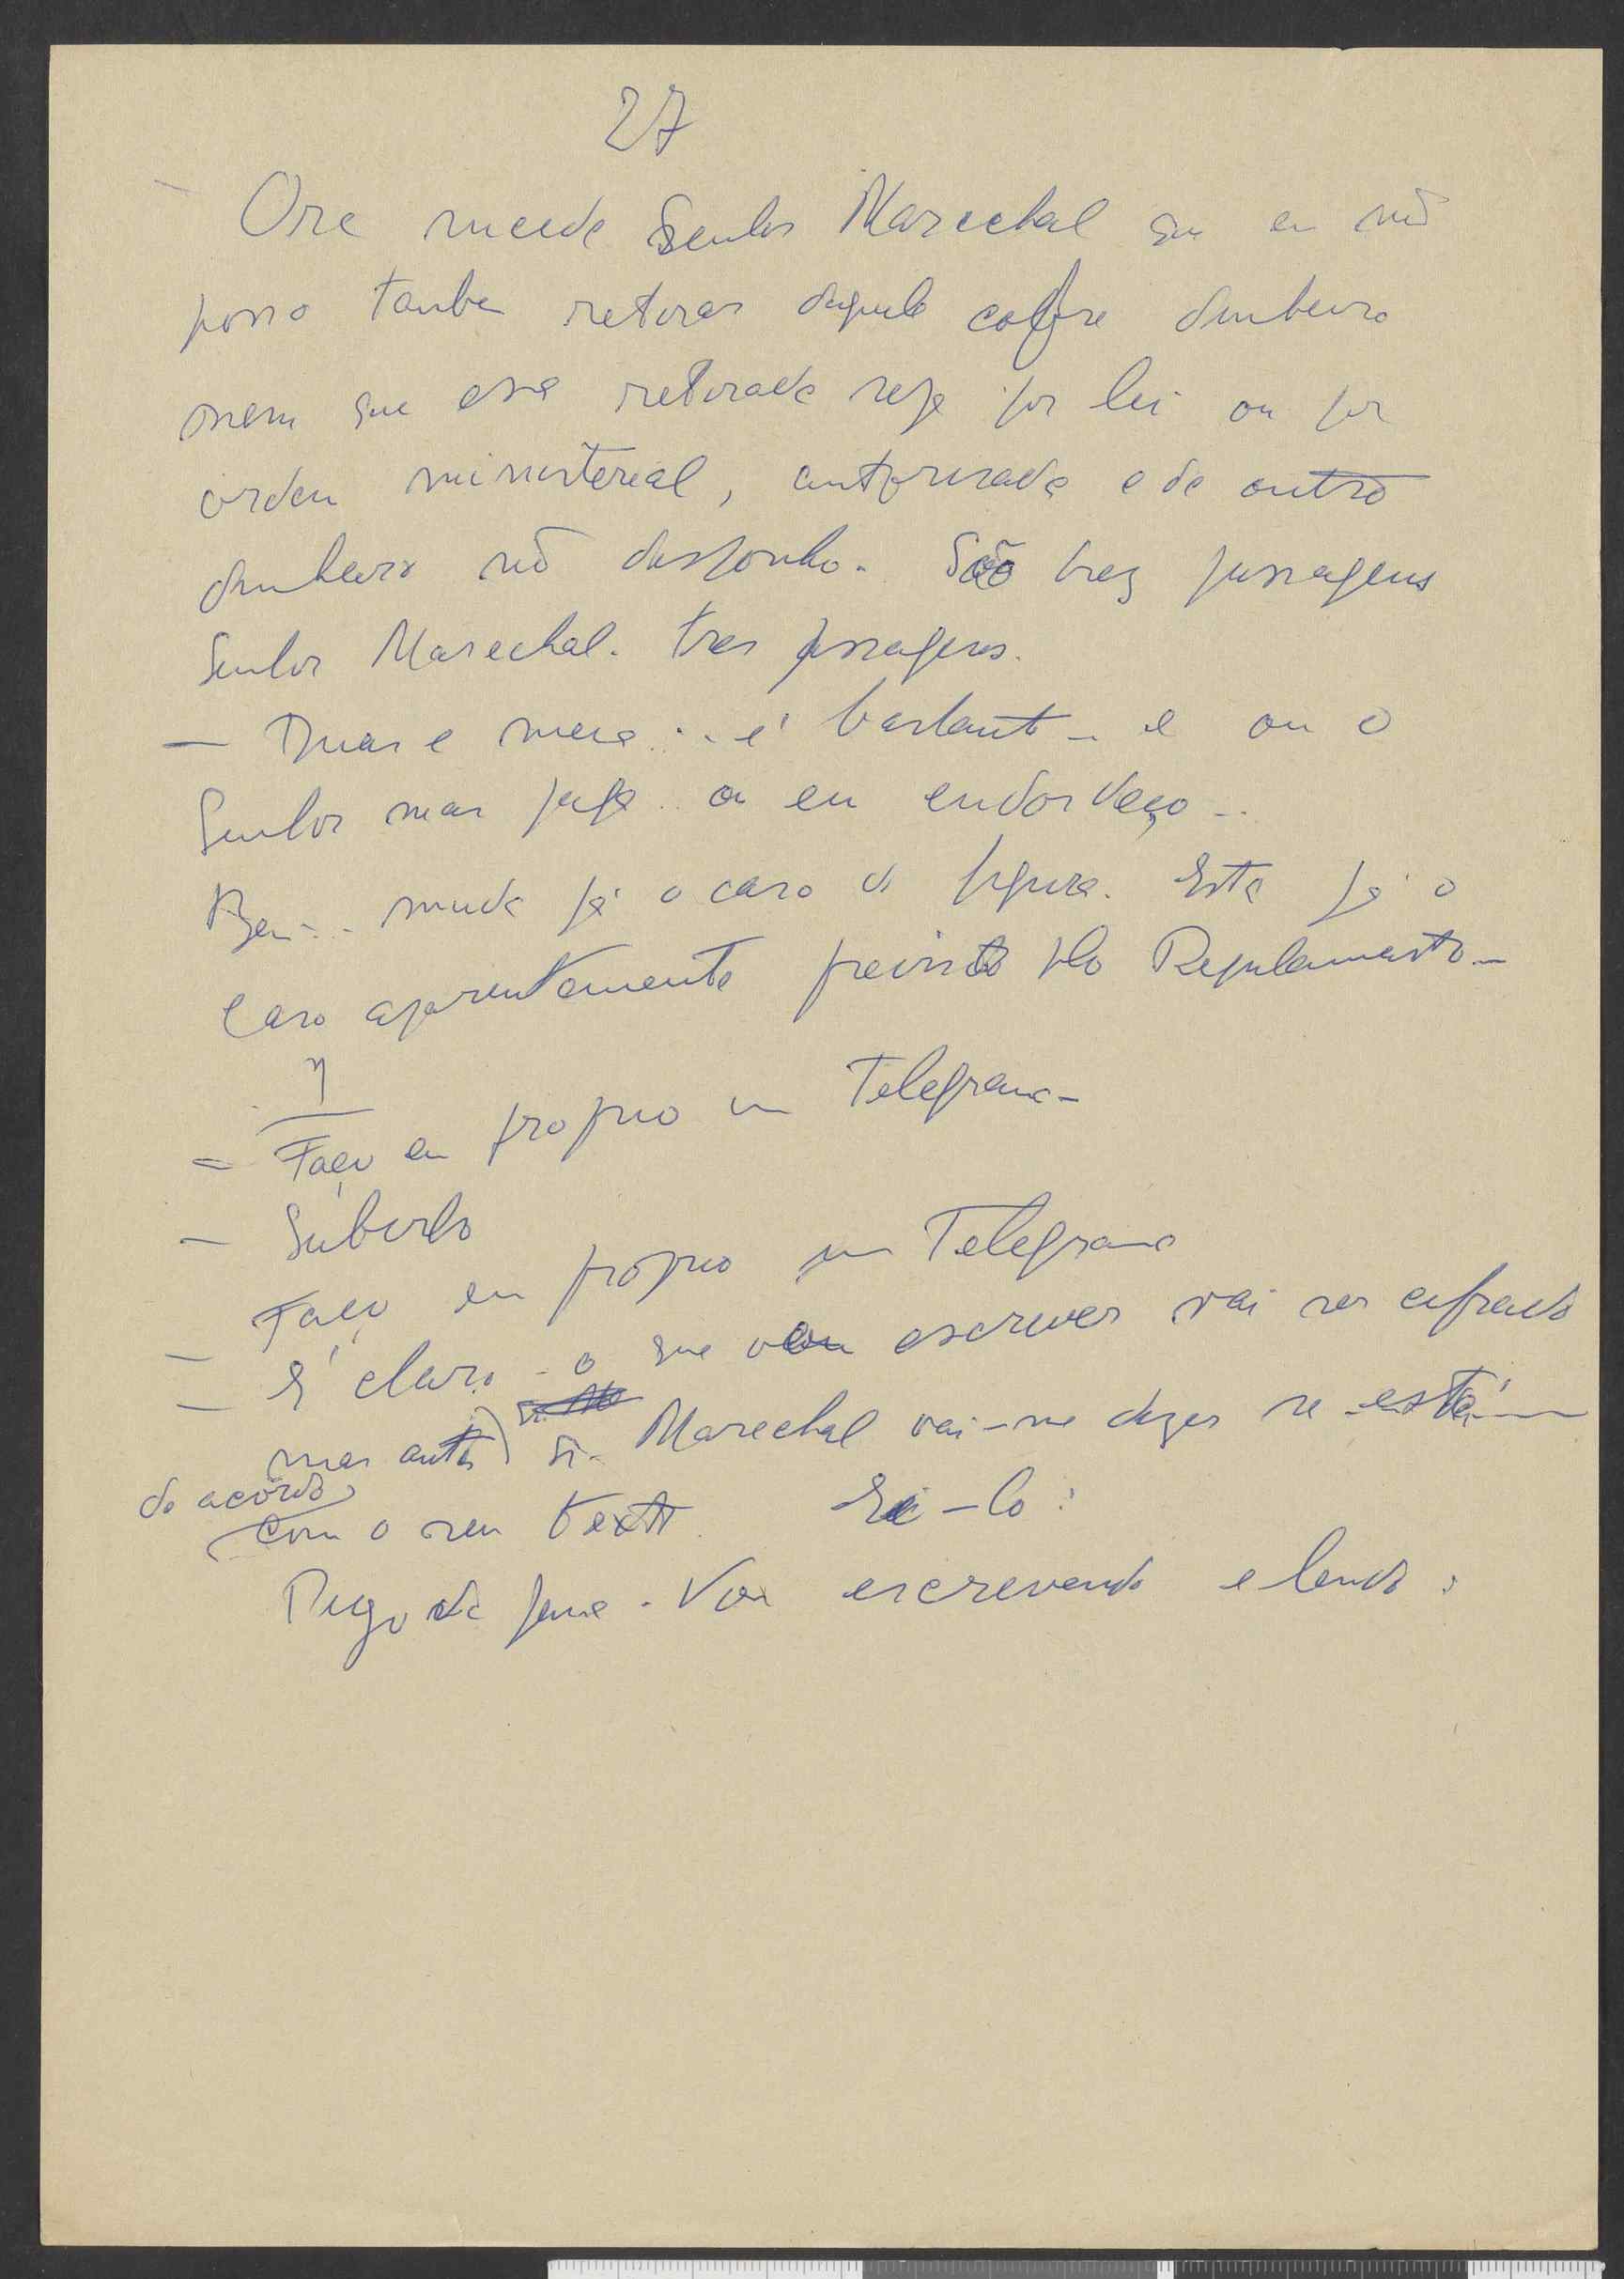 27
Ora sucede Senhor Marechal que eu não
posso tambem retirar daquele cofre dinheiro
sem que essa retirada seja por lei ou por
ordem ministerial, autorisada e de outro
dinheiro não disponho. São trez passagens
Senhor Marechal. tres passagens.
— Duas e meia... é bastante - e ou o
Senhor mas paga.. ou eu endoideço...
Bem... muda já o caso de figura. Está já o
caso aparentemente previsto pelo Regulamento -
= Faço eu proprio um Telegrama -
— Subirlo
— Faço eu proprio um Telegrama
— É claro - o que vou escrever vai ser cifrado
mas antes Sr. Marechal vai-me dizer se está
de acôrdo
com o seu texto. Ei-lo:
Pego da pena. Vou escrevendo e lendo: